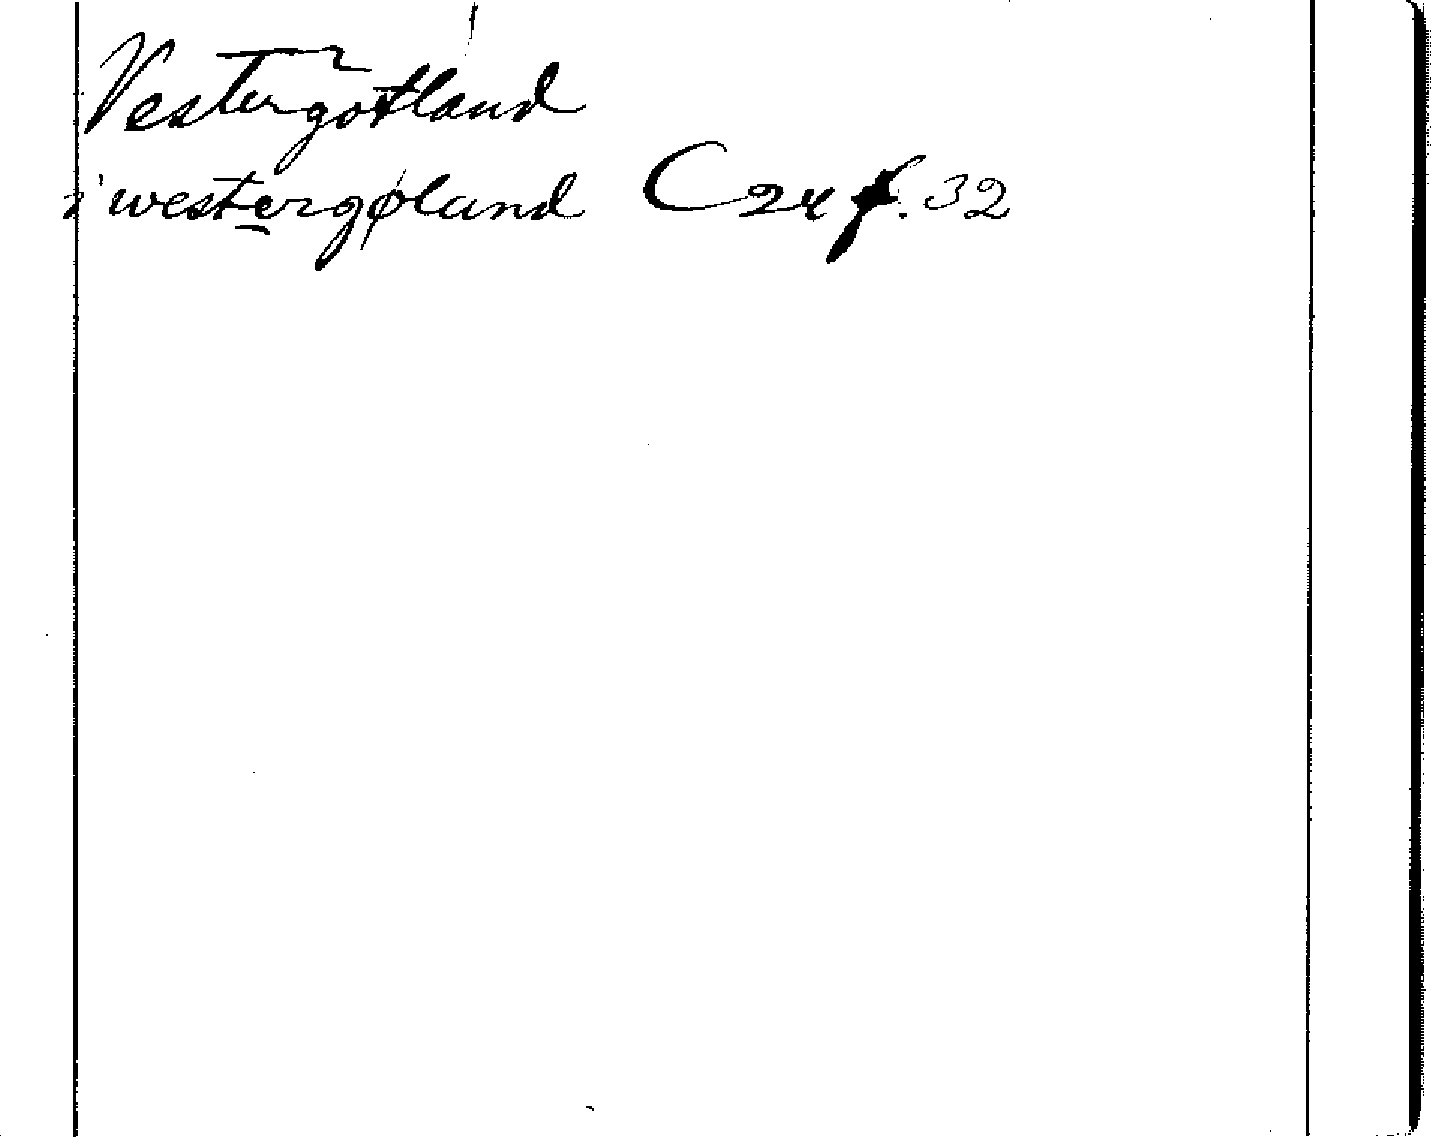 Vestergötland
i westergøland C 24 f. 32